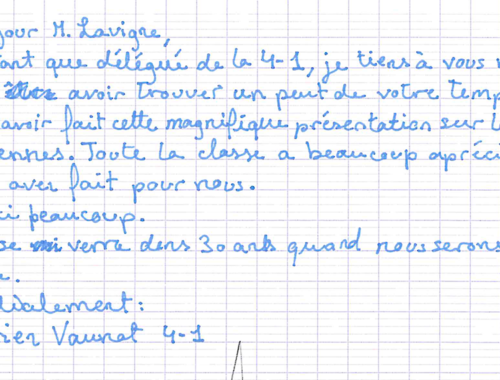 jour M. Lavigne,
ant que délégué de la 4-1, je tiens à vous
avoir trouver un peut de votre temp
avoir fait cette magnifique présentation sur l
ennes. Toute la classe a beaucoup apréci
aver fait pour nous.
ci peaucoup.
se verra dans 30 ans quand nous serons
e.
dialement:
ien Vaunat 4-1